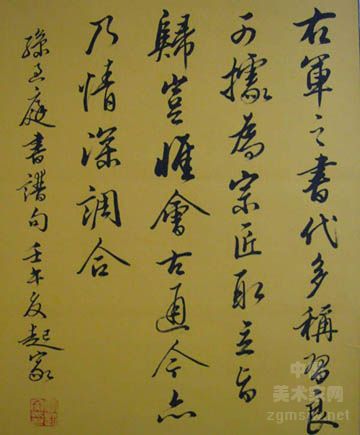 右軍之書代多稱習良
可據為宗匠取立旨
歸豈惟會古通今亦
乃情深調合
孫過庭書譜句壬午友起家
中國美术家网
zgmsjw.net